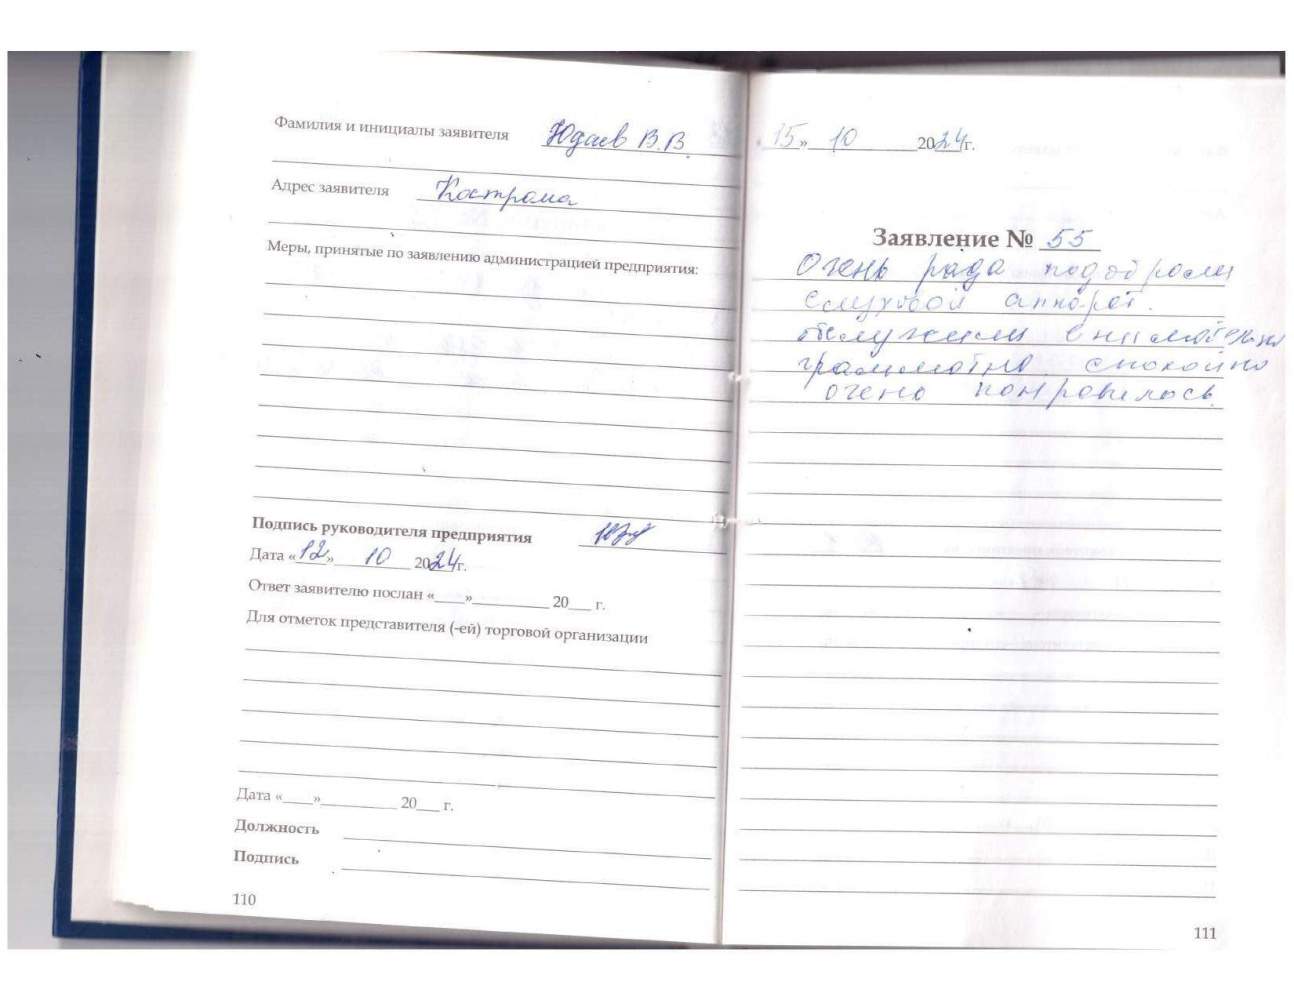 Фамилия и инициалы заявителя Юдаев В.В.
Адрес заявителя Кострома
Меры, принятые по заявлению администрацией предприятия:
Подпись руководителя предприятия
Дата «12» 10 2024г.
Ответ заявителю послан «____»__________ 20___ г.
Для отметок представителя (-ей) торговой организации
Дата «____»__________ 20___ г.
Должность
Подпись
110
15» 10 2024г.
Заявление № 55
Очень рада подобрали
слуховой аппарат.
внимательно
грамматно спокойно
очено понравилось.
111